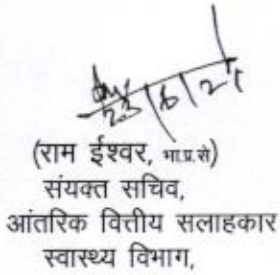 23/6/25
(राम ईश्वर, भा.प्र.से)
संयक्त सचिव,
आंतरिक वित्तीय सलाहकार
स्वास्थ्य विभाग,